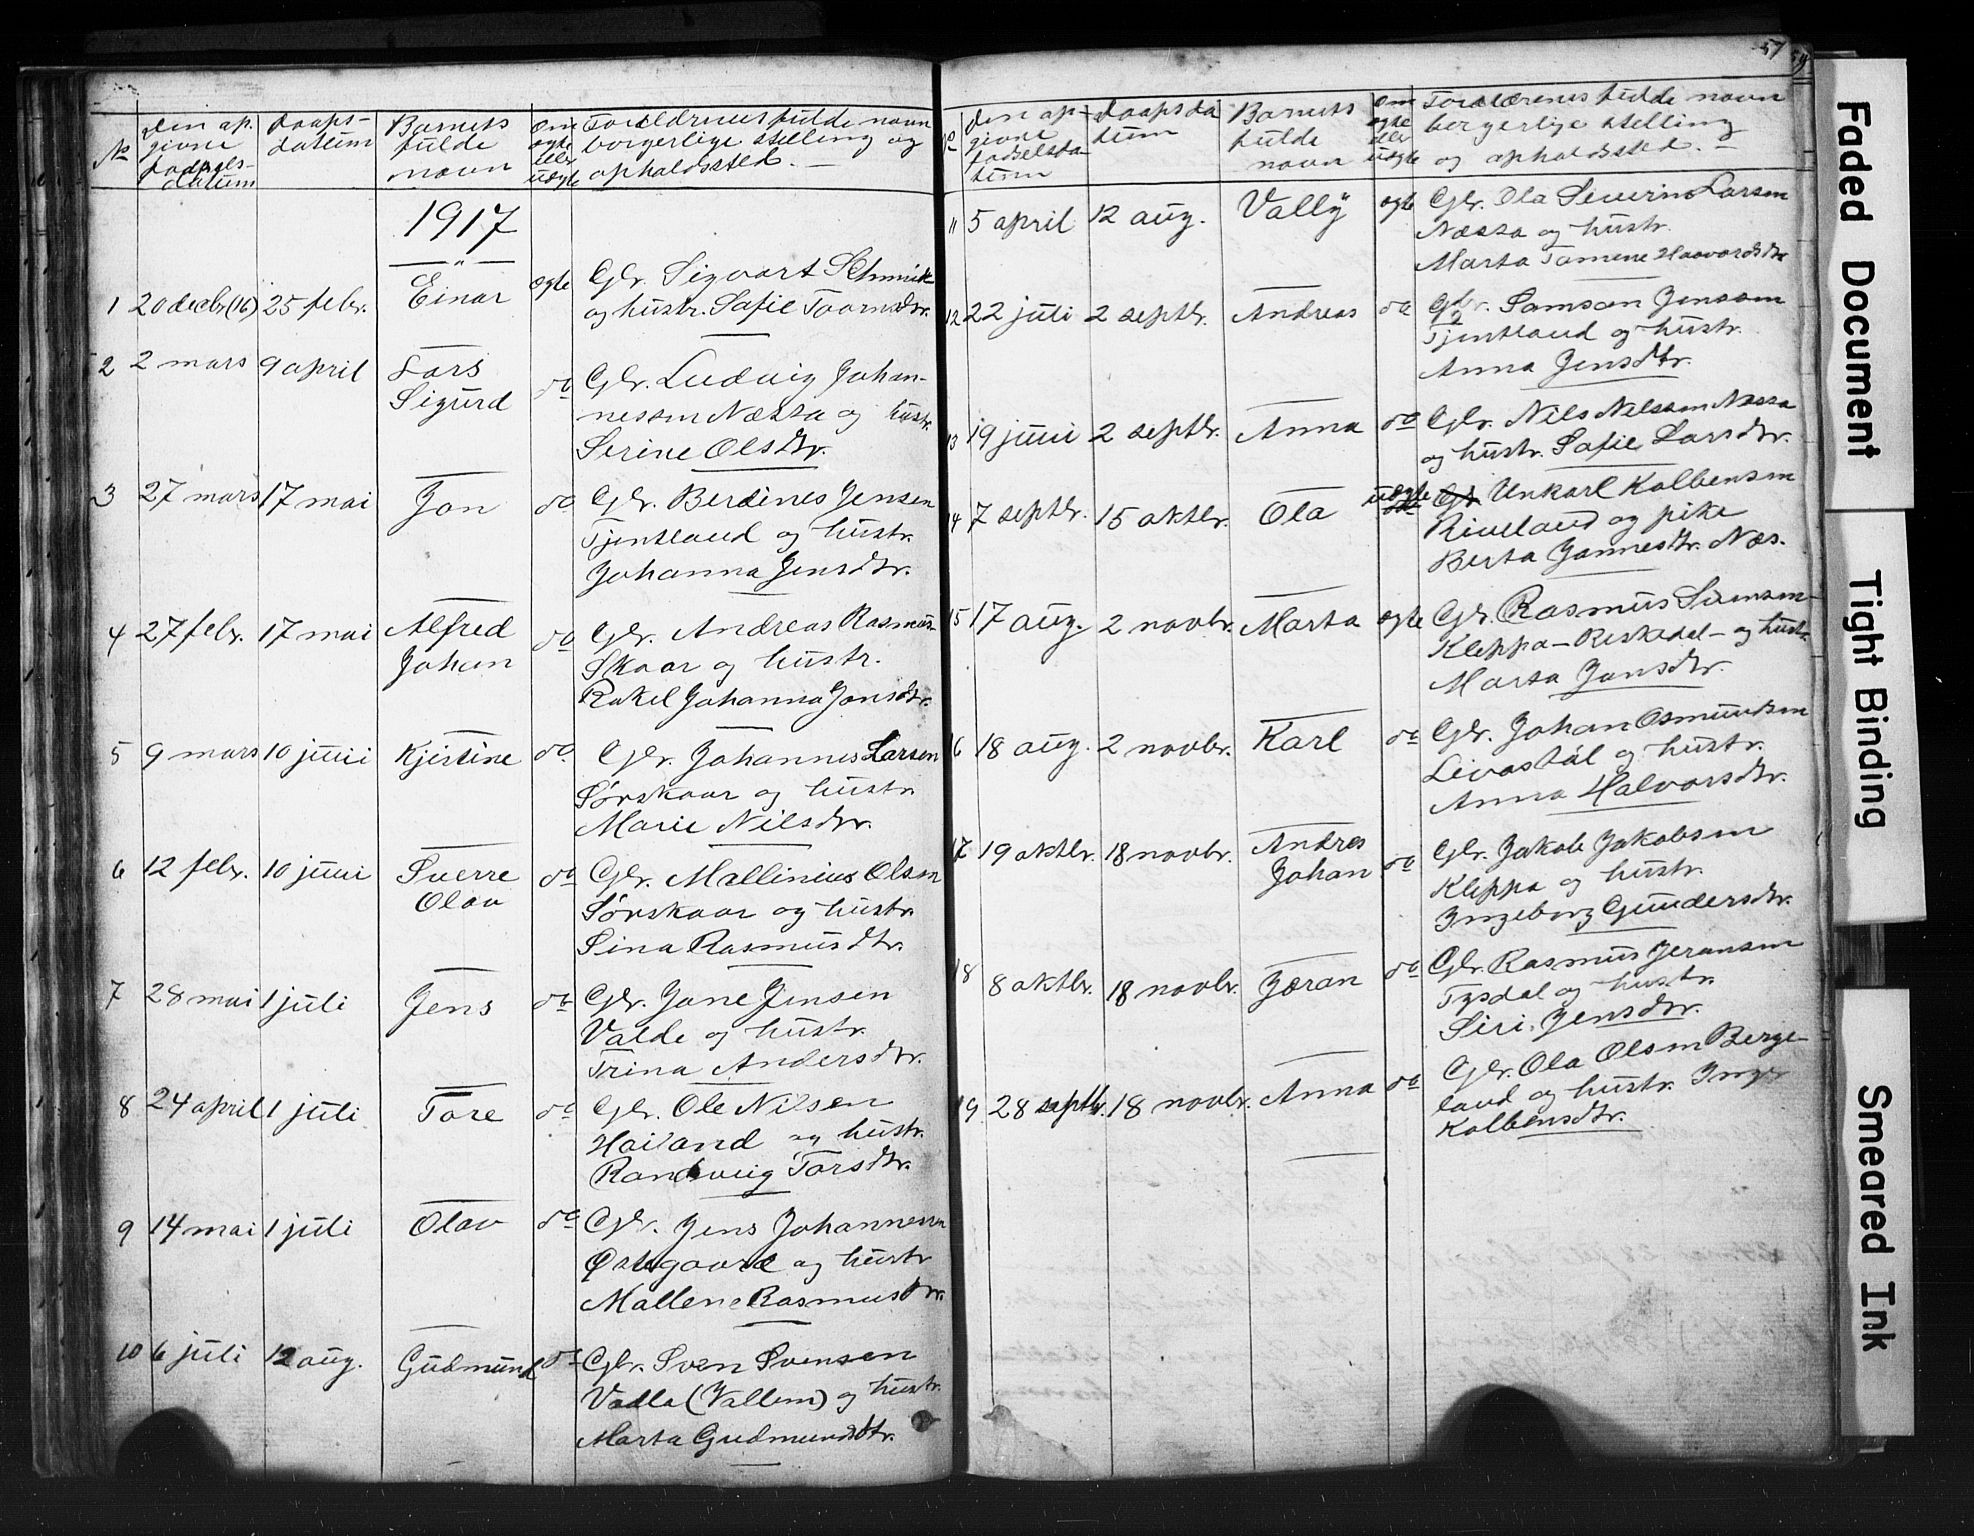 No
Den op-
givne
fødsels-
datum
Daaps-
datum
Barnets
fulde
navn
Om
egte
eller
uegte
Forældrenes fulde navn
borgerlige stilling og
opholdssted.
1917
1
20 decbr (16)
25 febr.
Einar
egte
Gbr. Sigvart Schmidt
og hustr. Sofie Toornsdtr.
2
2 mars
9 april
Lars
Sigurd
do
Gbr. Ludvig Johan-
nessen Næssa og hustr.
Serine Olsdtr.
3
27 mars
17 mai
Jon
do
Gbr. Berdines Jensen
Tjentland og hustr.
Johanna Jensdtr.
4
27 febr.
17 mai
Alfred
Johan
do
Gbr. Andreas Rasmus-
Skaar og hustr.
Rakel Johanna Jonsdtr.
5
9 mars
10 juni
Kjistine
do
Gbr. Johannes Larsen
Sørskaar og hustr.
Marie Nilsdtr.
6
12 febr.
10 juni
Sverre
Olav
do
Gbr. Mallinius Olsen
Sørskaar og hustr.
Sina Rasmusdtr.
7
28 mai
1 juli
Jens
do
Gbr. Jone Jensen
Valde og hustr.
Trina Andersdtr.
8
24 april
1 juli
Tore
do
Gbr. Ole Nilsen
Hailand og hustr.
Randveig Torsdtr.
9
14 mai
1 juli
Olav
do
Gbr. Jens Johannesen
Østegaard og hustr
Mallene Rasmusdtr.
10
6 juli
12 aug.
Gudmund
do
Gbr. Sven Svensen
Vadla (Vallem) og hustr.
Marta Gudmundsdtr.
57
59
No
Den op-
givne
fødselsda-
tum
Daapsda
tum
Barnets
fulde
navn
Om
egte
eller
uegte
Forældrenes fulde navn
borgerlige stilling
og opholdssted.
11
5 april
12 aug.
Vally
egte
Gbr. Ola Severin Larsen
Næssa og hustr.
Marta Tomene Haavardsdtr
12
22 juli
2 septbr.
Andreas
do
Gbr. Samson Jenssen
Tjentland og hustr.
Anna Jensdtr.
13
19 juni
2 septbr.
Anna
do
Gbr. Nils Nilssen Næssa
og hustr. Sofie Larsdtr.
14
7 septbr.
15 oktbr.
Ola
uegte
do
Gbr Unkarl Kolbensen
Riveland og pike
Berta Jonnesdtr. Næs.
15
17 aug.
2 novbr.
Marta
egte
Gbr. Rasmus Sivensen
Kleppa - Reskedal - og hustr.
Marta Jonsdtr.
16
18 aug.
2 novbr.
Karl
do
Gbr. Johan Osmundsen
Livastøl og hustr.
Anna Halvorsdtr.
17
19 oktbr.
18 novbr.
Andres
Johan
do
Gbr. Jakob Jakobsen
Kleppa og hustr.
Ingeborg Gundersdtr.
18
8 oktbr.
18 novbr.
Jøran
do
Gbr. Rasmus Jøransen
Tysdal og hustr.
Siri Jensdtr.
19
28 septbr.
18 novbr.
Anna
do
Gbr. Ola Olsen Berge-
land og hustr. Inger
Kolbensdtr.
Faded Document
Tight Binding
Smeared Ink